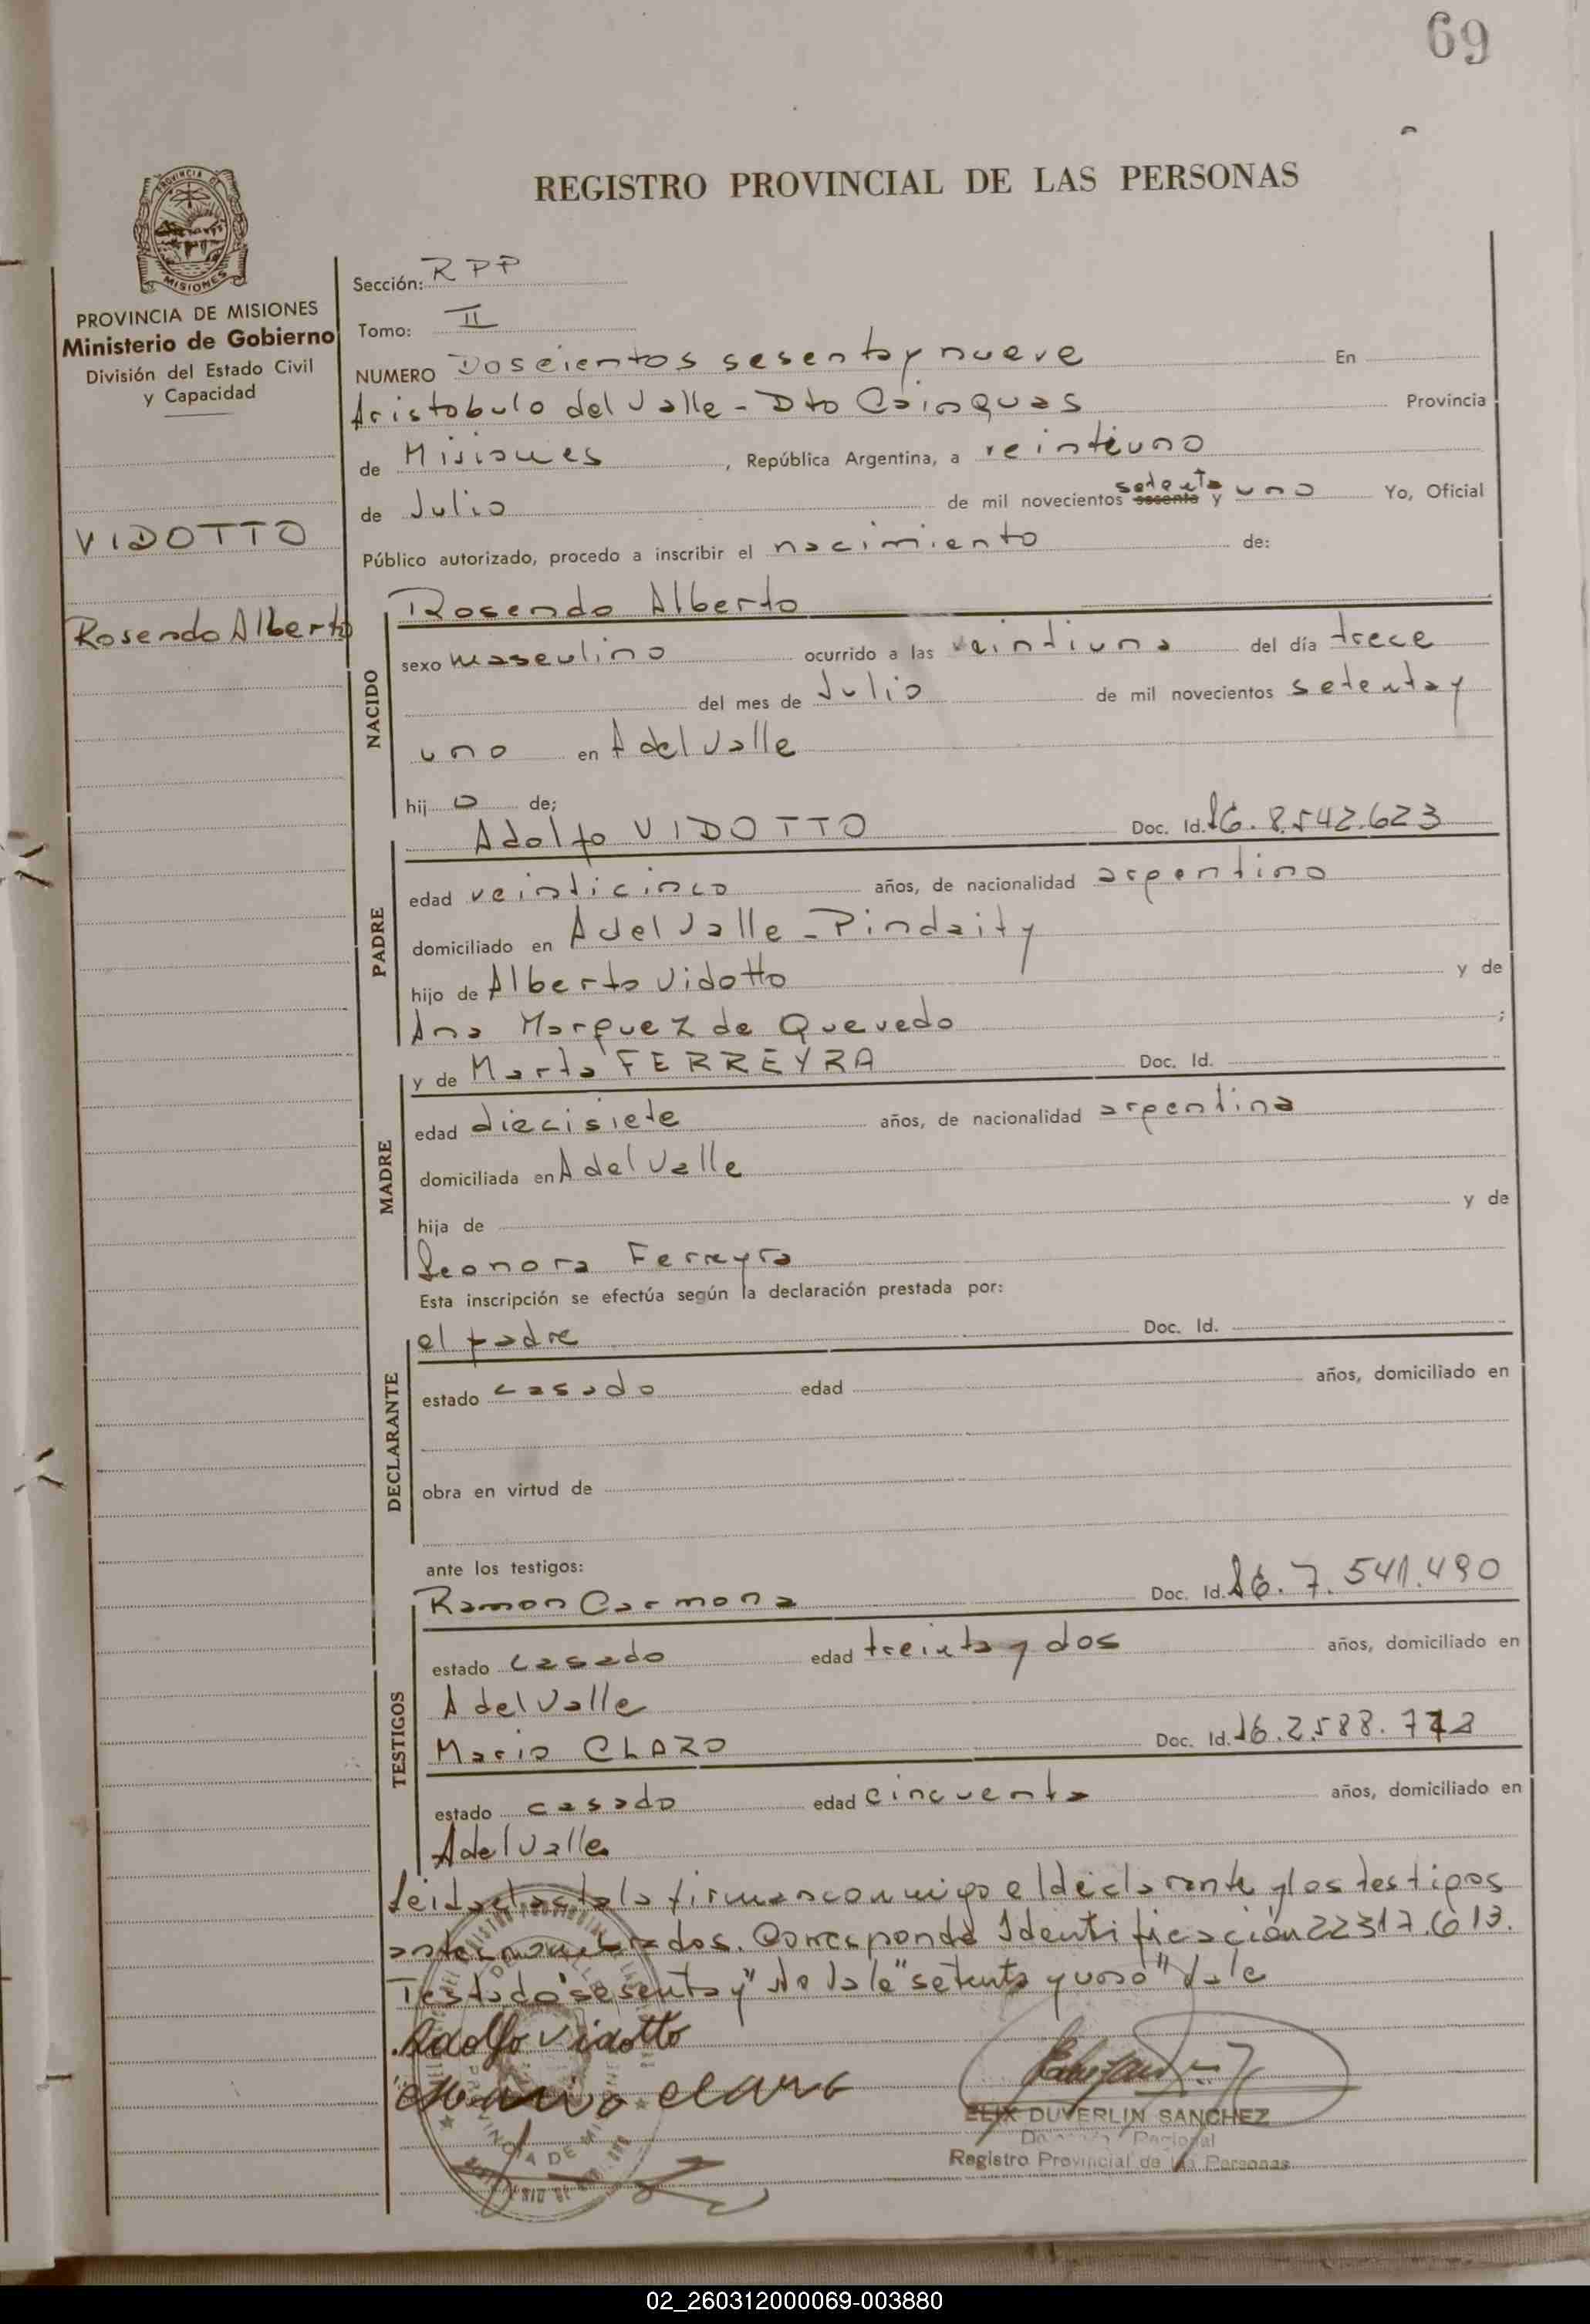 69
REGISTRO PROVINCIAL DE LAS PERSONAS
PROVINCIA DE MISIONES
Ministerio de Gobierno
División del Estado Civil
y Capacidad
VIDOTTO
Rosendo Alberto
Sección: RPP
Tomo: II
NUMERO Doscientos sesenta y nueve En
Aristobulo del Valle - Dto Cainguas Provincia
de Misiones, República Argentina, a veintiuno
de Julio de mil novecientos sesenta setenta y uno Yo, Oficial
Público autorizado, procedo a inscribir el nacimiento de:
Rosendo Alberto
NACIDO
sexo masculino ocurrido a las veintiuna del día trece
del mes de Julio de mil novecientos setenta y
uno en A del Valle
hijo de;
PADRE
Adolfo VIDOTTO Doc. Id. 8.542.623
edad veinticinco años, de nacionalidad argentino
domiciliado en A del Valle - Pindaity
hijo de Alberto Vidotto y de
Ana Marquez de Quevedo ;
MADRE
y de Marta FERREYRA Doc. Id.
edad diecisiete años, de nacionalidad argentina
domiciliada en A del Valle
hija de y de
Leonora Ferreyra
Esta inscripción se efectúa según la declaración prestada por:
DECLARANTE
el padre Doc. Id.
estado casado edad años, domiciliado en
obra en virtud de
ante los testigos:
TESTIGOS
Ramon Carmona Doc. Id. 7.541.490
estado casado edad treinta y dos años, domiciliado en
A del Valle
Mario CLARO Doc. Id. 2.588.
estado casado edad cincuenta años, domiciliado en
A del Valle
Leida el acta la firman conmigo el declarante y los testigos
antes nombrados. Corresponde Identificación 22317.613.
Testado "sesenta y" No Vale "setenta y uno" Vale
Adolfo Vidotto
Mario Claro
ELIX DUVERLIN SANCHEZ
Registro Provincial de las Personas
02_260312000069-003880